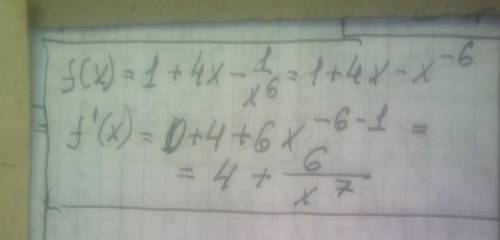 f(x) = 1 + 4x - 1/x^6 = 1 + 4x - x^-6
f'(x) = 0 + 4 + 6x^-6-1 =
= 4 + 6/x^7